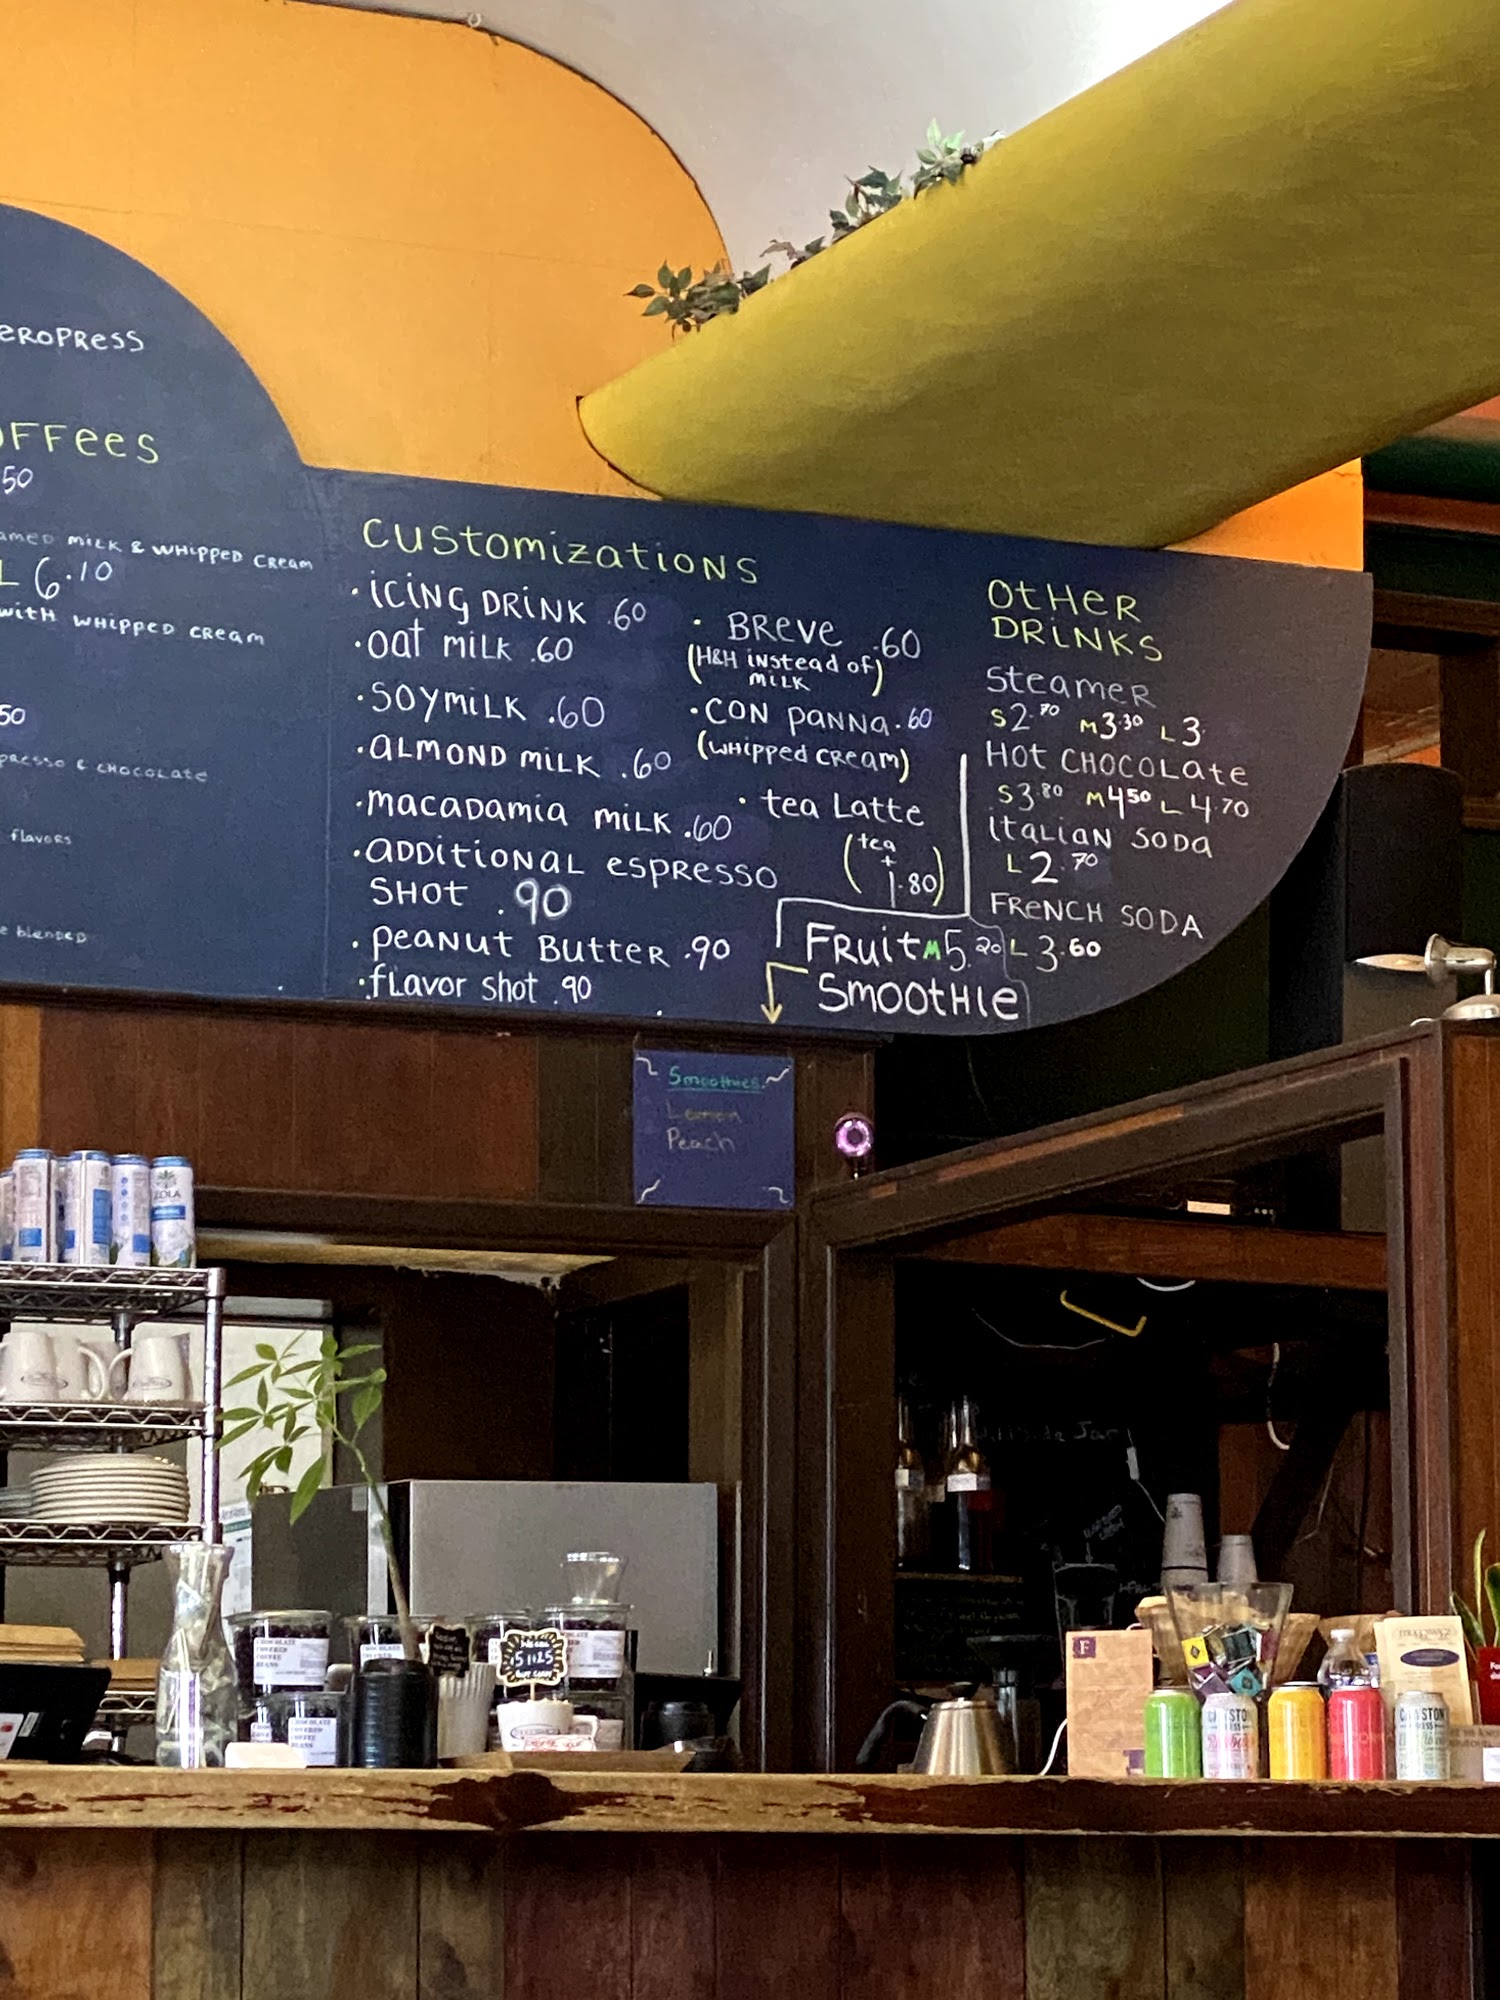 eROPRess
OFFees
50
amed milk & whipped cream
L 6.10
with whipped cream
50
presso & chocolate
flavors
e blended
Customizations
·icing DRiNK .60
·oat milk .60
·soymilk .60
·almond milk .60
·macadamia milk .60
·additional espresso
shot .90
·peanut butter .90
·flavor shot .90
· Breve .60
(H&H instead of
milk)
·con panna .60
(whipped cream)
· tea Latte
(tea
+
1.80)
OtHer
DRiNKs
Steamer
S2.70 M3.30 L3.
Hot CHOCOLate
S3.80 M4.50 L 4.70
italian Soda
L2.70
FReNCH SODA
L 3.60
FRuit M5.20
SmootHie
Smoothies
Lemon
Peach
CHOCOLATE
COVERED
COFFEE
BEANS